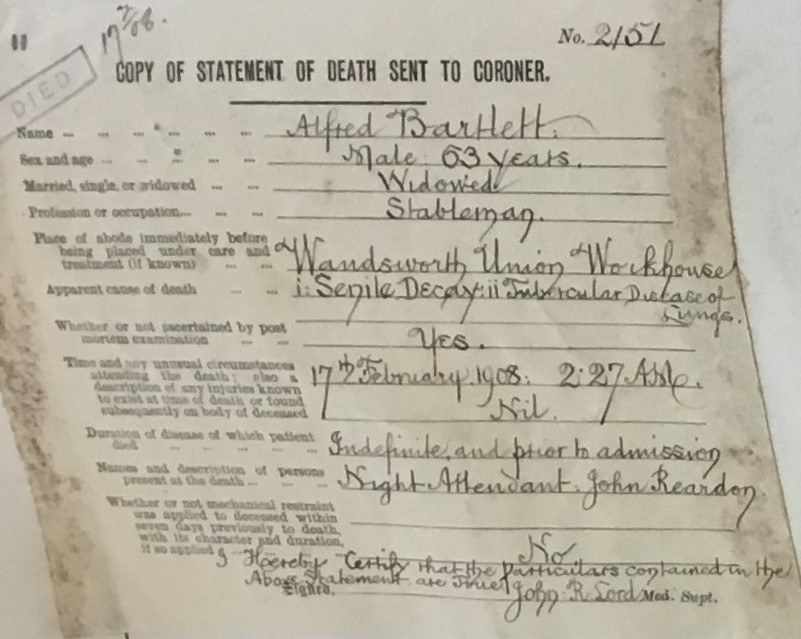 17/2/08.
No. 2151
DIED
COPY OF STATEMENT OF DEATH SENT TO CORONER.
Name ... ... ... ... ... ... Alfred Bartlett.
Sex and age ... ... ... ... ... Male. 63 years.
Married, single, or widowed ... ... Widowed.
Profession or occupation... ... ... Stableman.
Place of abode immediately before
being placed under care and
treatment (if known) ... ... Wandsworth Union Workhouse
Apparent cause of death ... ... i: Senile Decay: ii Tubercular Disease of
Lungs.
Whether or not ascertained by post
mortem examination ... ... Yes.
Time and any unusual circumstances
attending the death; also a
description of any injuries known
to exist at time of death or found
subsequently on body of deceased
17th February 1908: 2:27 AM.
Nil.
Duration of disease of which patient
died ... ... ... ... ... Indefinite, and prior to admission
Names and description of persons
present at the death ... ... ... Night Attendant: John Reardon.
Whether or not mechanical restraint
was applied to deceased within
seven days previously to death,
with its character and duration,
if so applied No.
I Hereby Certify that the particulars contained in the
Above Statement are True
Signed, John R Lord Med. Supt.